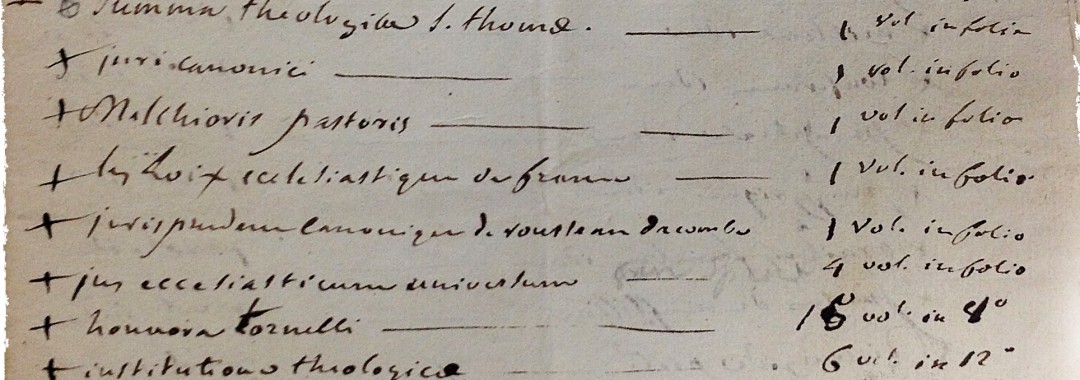 + Summa theologicæ S. thomæ. 1 vol infolio
+ juris canonici 1 vol. infolio
+ Melchioris pastoris 1 vol in folio
+ les Loix ecclesiastique de france 1 vol. infolio
+ jurisprudence canonique de rousseau dacombe 1 vol. infolio
+ jus ecclesiasticum universum 4 vol. infolio
+ honnora tornelli vol in 8°
+ institutiones theologicæ 6 vol. in 12°